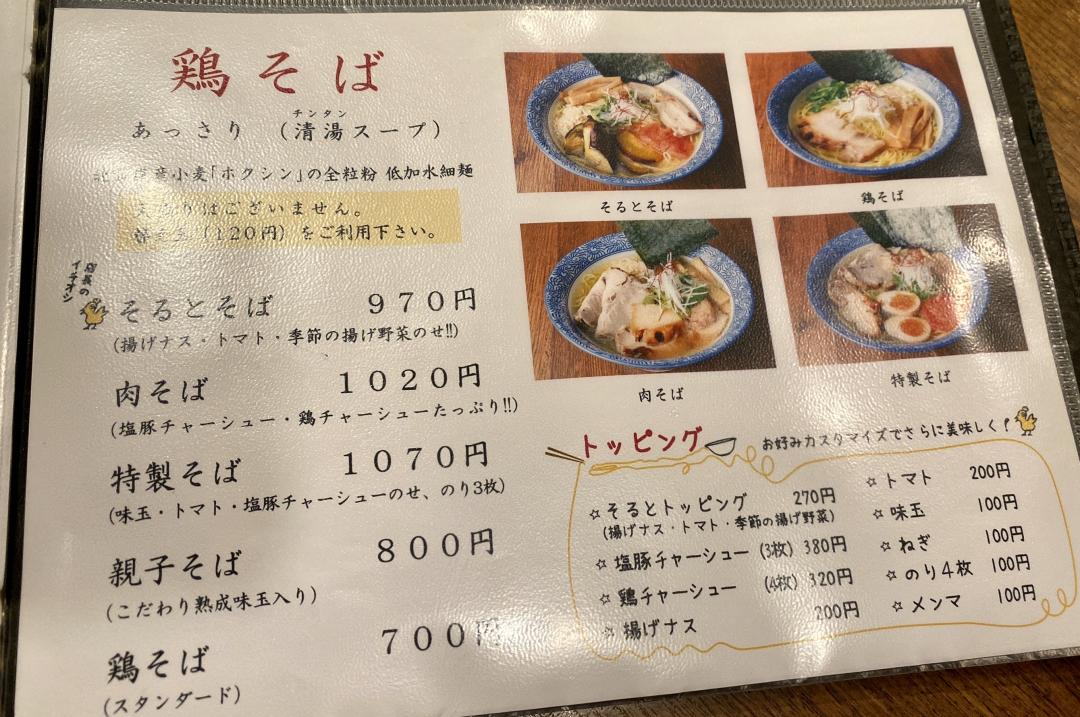 鶏そば
チンタン
あっさり （清湯スープ）
産小麦「ホクシン」の全粒粉 低加水細麺
はございません。
（120円）をご利用下さい。
店長の
イチオシ
そるとそば 970円
（揚げナス・トマト・季節の揚げ野菜のせ!!）
肉そば 1020円
（塩豚チャーシュー・鶏チャーシューたっぷり!!）
特製そば 1070円
（味玉・トマト・塩豚チャーシューのせ、のり3枚）
親子そば 800円
（こだわり熟成味玉入り）
鶏そば 700円
（スタンダード）
そるとそば
鶏そば
肉そば
特製そば
トッピング お好みカスタマイズでさらに美味しく!
☆そるとトッピング 270円
（揚げナス・トマト・季節の揚げ野菜）
☆塩豚チャーシュー（3枚）380円
☆鶏チャーシュー （4枚）320円
☆揚げナス 200円
☆トマト 200円
☆味玉 100円
☆ねぎ 100円
☆のり4枚 100円
☆メンマ 100円